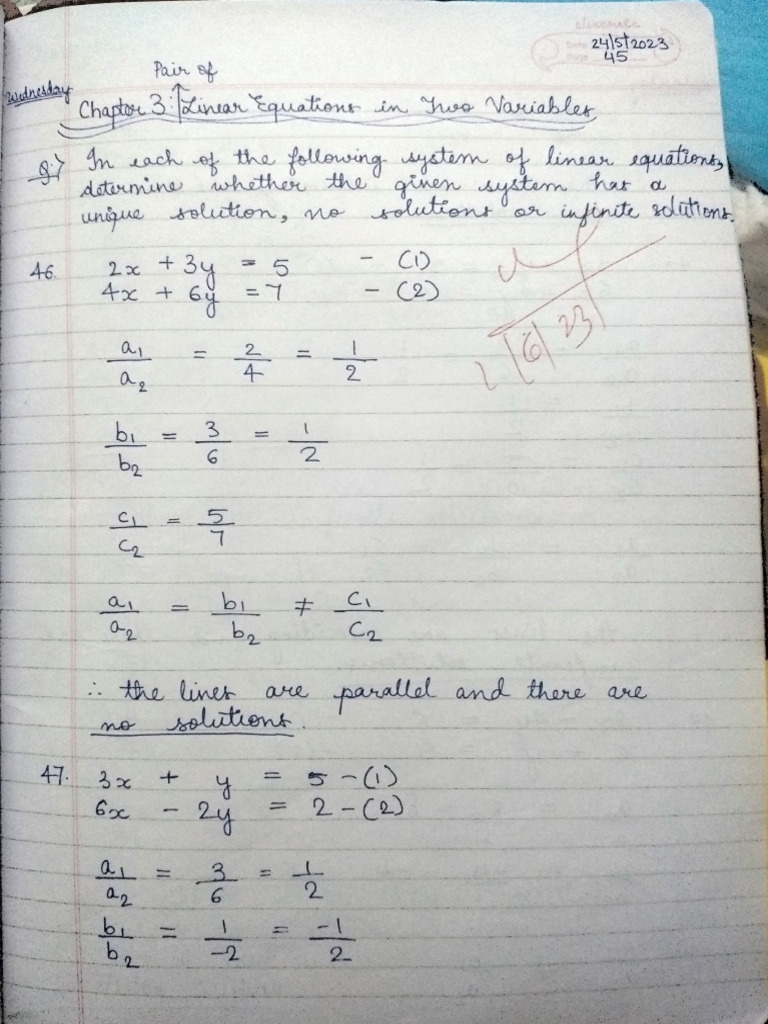 classmate
Date 24/5/2023
Page 45
Wednesday
Pair of
Chapter 3: Linear Equations in Two Variables
Q:7 In each of the following system of linear equations,
determine whether the given system has a
unique solution, no solutions or infinite solutions.
46. 2x + 3y = 5 - (1)
4x + 6y = 7 - (2)
a1/a2 = 2/4 = 1/2
b1/b2 = 3/6 = 1/2
c1/c2 = 5/7
a1/a2 = b1/b2 ≠ c1/c2
∴ the lines are parallel and there are
no solutions.
47. 3x + y = 5 - (1)
6x - 2y = 2 - (2)
a1/a2 = 3/6 = 1/2
b1/b2 = 1/-2 = -1/2